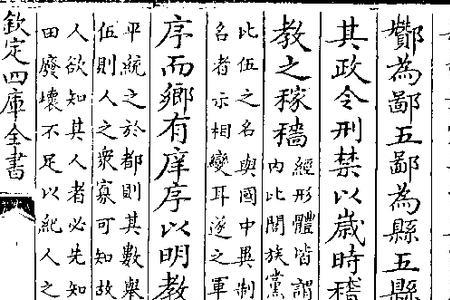 酇為鄙五鄙為縣五縣
其政令刑禁以歲時稽
教之稼穡
經形體皆謂
内比閭族黨
比伍之名與國中異制
名者示相變耳遂之軍
序而鄉有庠序以明教
平統之於都則其數舉
伍則人之衆寡可知故
人欲知其人者必先知
田廢壞不足以紀人之
欽定四庫全書